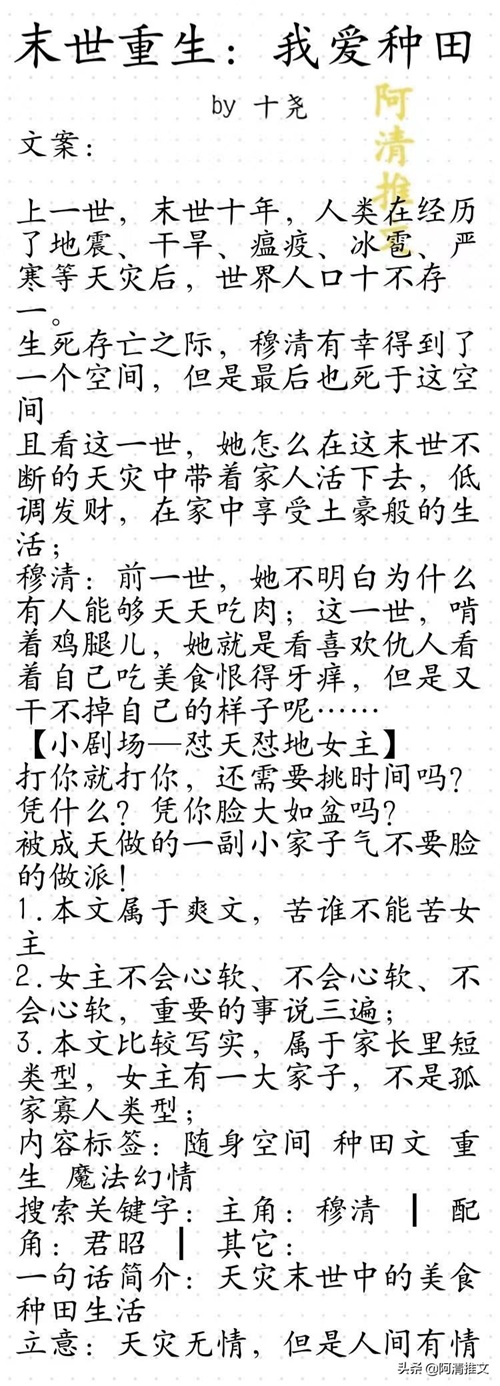 末世重生：我爱种田
by 十尧
阿清推文
文案：
上一世，末世十年，人类在经历
了地震、干旱、瘟疫、冰雹、严
寒等天灾后，世界人口十不存
一。
生死存亡之际，穆清有幸得到了
一个空间，但是最后也死于这空
间
且看这一世，她怎么在这末世不
断的天灾中带着家人活下去，低
调发财，在家中享受土豪般的生
活；
穆清：前一世，她不明白为什么
有人能够天天吃肉；这一世，啃
着鸡腿儿，她就是看喜欢仇人看
着自己吃美食恨得牙痒，但是又
干不掉自己的样子呢……
【小剧场—怼天怼地女主】
打你就打你，还需要挑时间吗？
凭什么？凭你脸大如盆吗？
被成天做的一副小家子气不要脸
的做派！
1.本文属于爽文，苦谁不能苦女
主
2.女主不会心软、不会心软、不
会心软，重要的事说三遍；
3.本文比较写实，属于家长里短
类型，女主有一大家子，不是孤
家寡人类型；
内容标签：随身空间 种田文 重
生 魔法幻情
搜索关键字：主角：穆清 ┃ 配
角：君昭 ┃ 其它：
一句话简介：天灾末世中的美食
种田生活
立意：天灾无情，但是人间有情
头条 @阿清推文